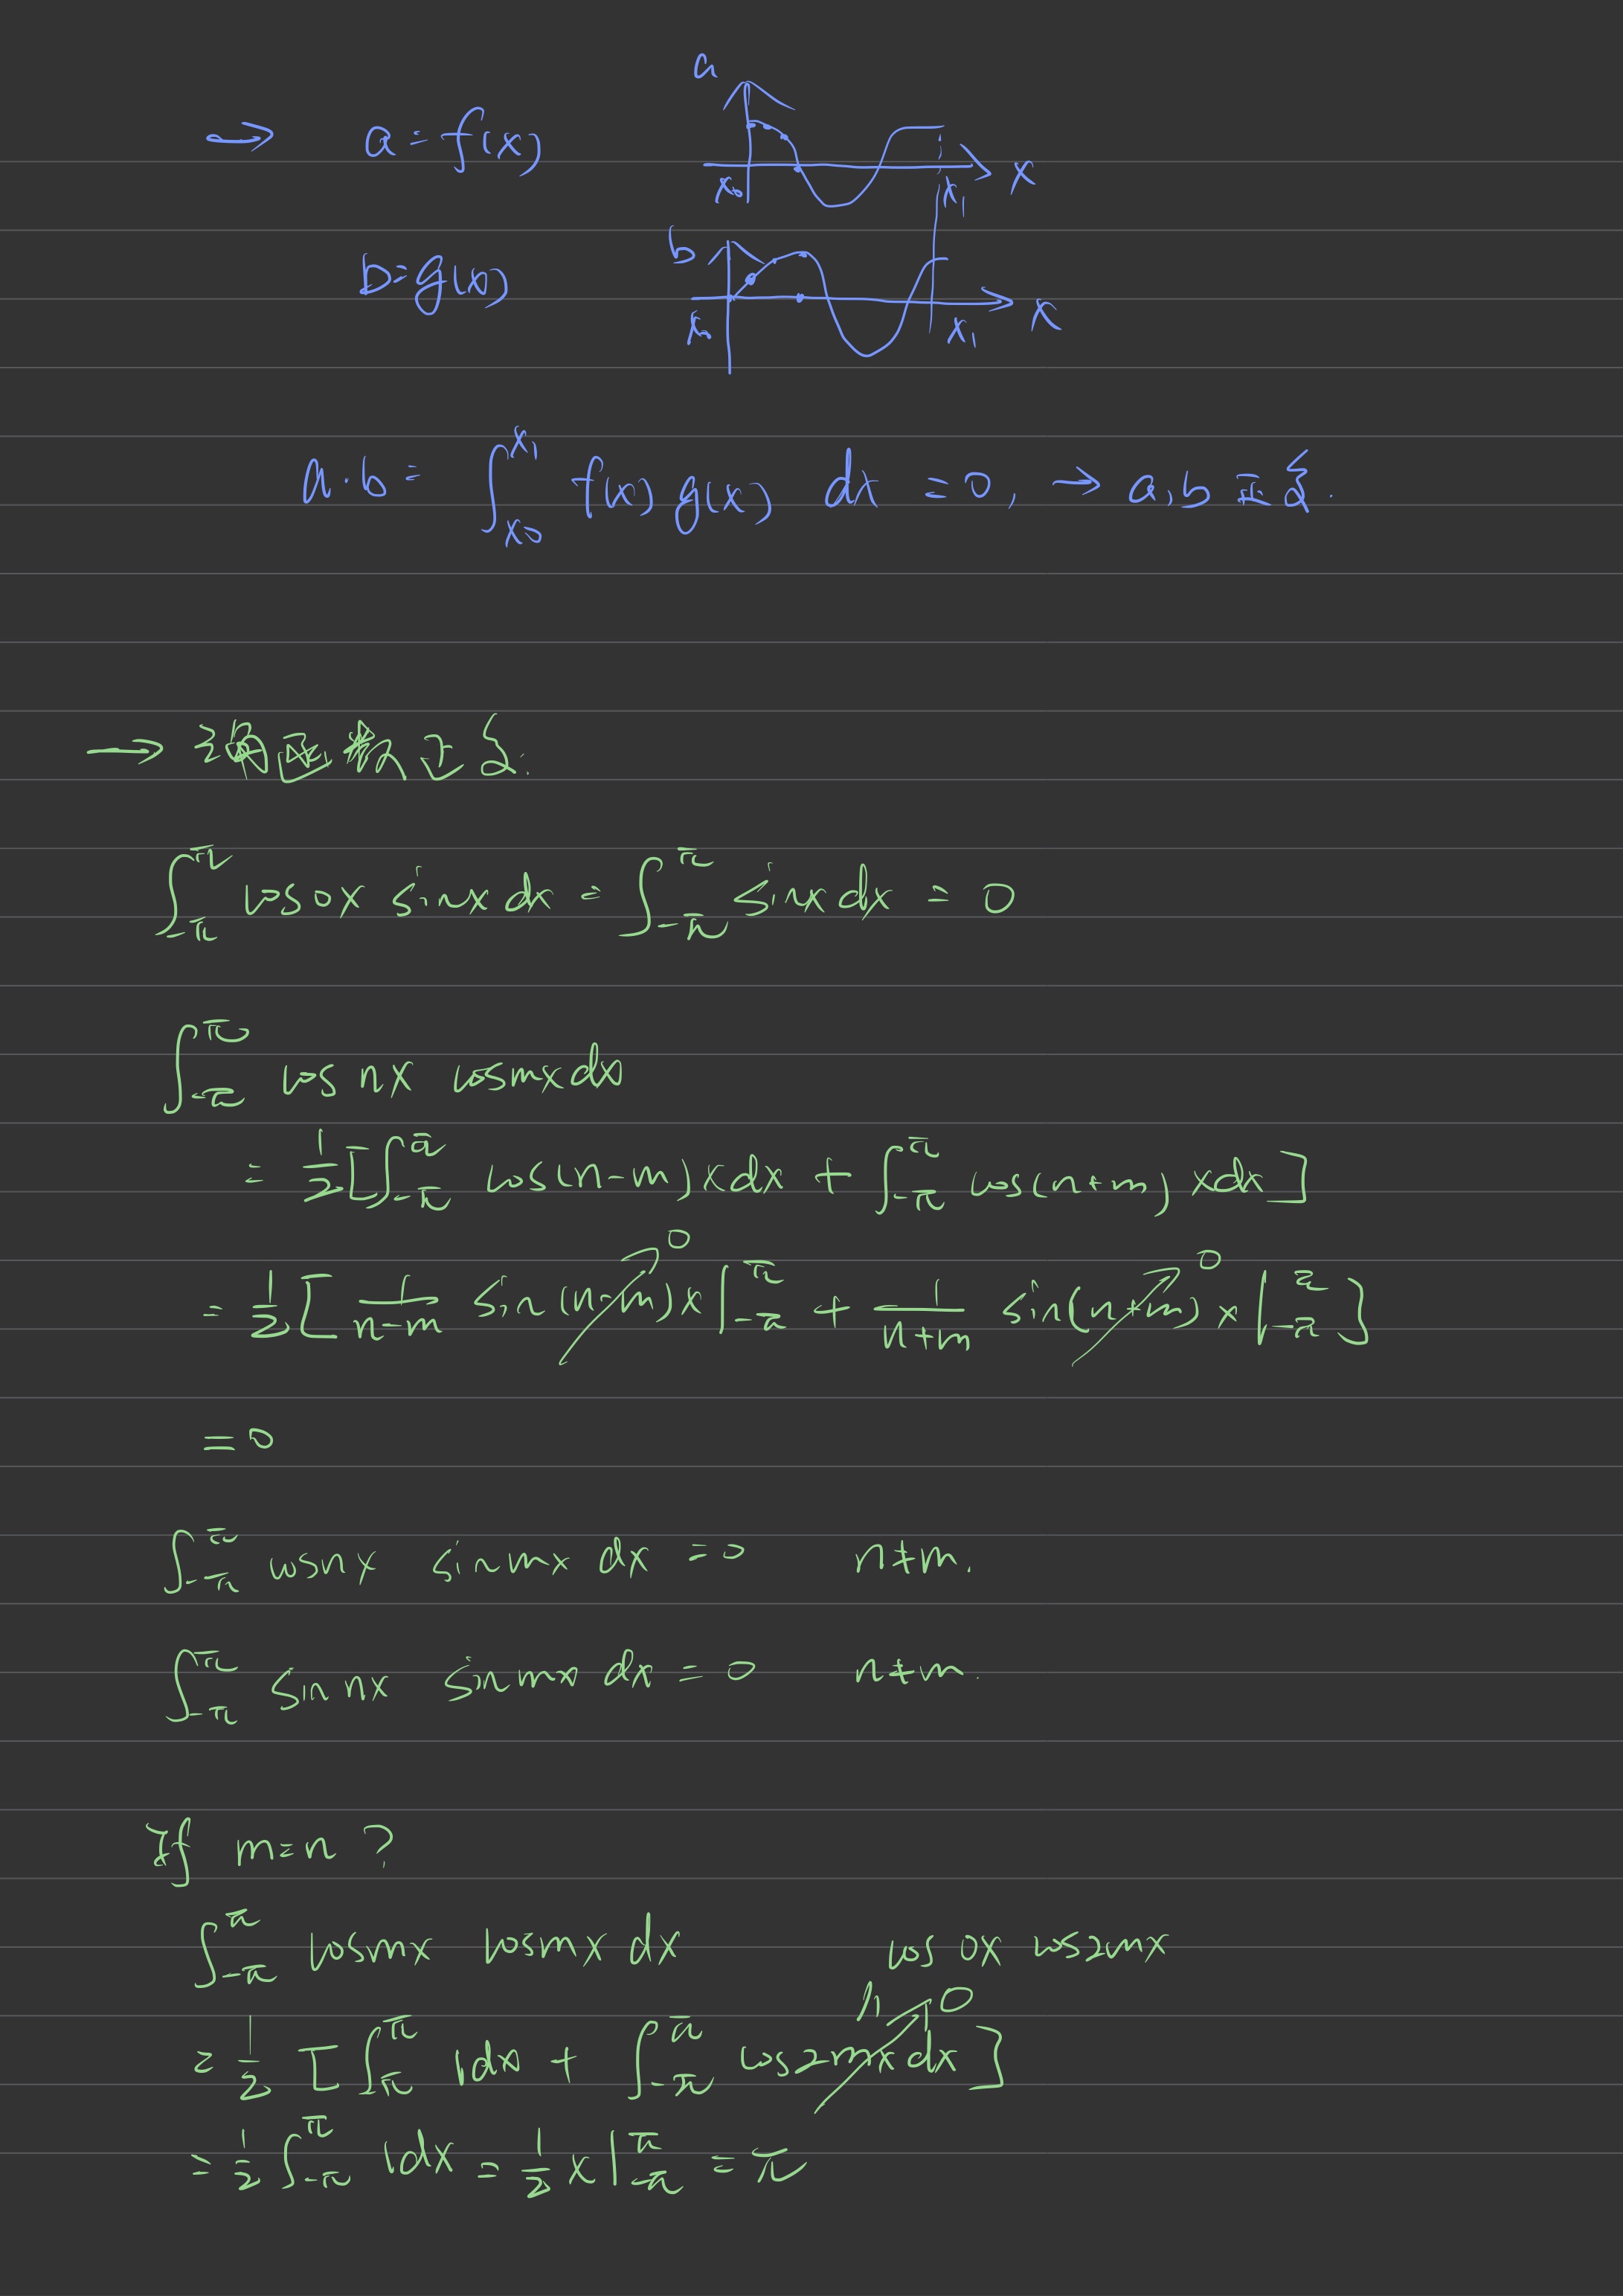 a
→ a = f(x)
x₀ x₁ x
b
b = g(x)
x₀ x₁ x
a·b = ∫_{x₀}^{x₁} f(x) g(x) dx = 0, → a,b 正交.
→ 三角函数正交.
∫_{-π}^{π} cos 0x sin x dx = ∫_{-π}^{π} sin x dx = 0
∫_{-π}^{π} cos nx cos mx dx
= 1/2 [∫_{-π}^{π} cos(n-m)x dx + ∫_{-π}^{π} cos(n+m)x dx]
= 1/2 [1/(n-m) sin(n-m)x |_{-π}^{π} → 0 + 1/(n+m) sin(n+m)x |_{-π}^{π} → 0]
= 0
∫_{-π}^{π} cos nx sin mx dx = 0 n≠m.
∫_{-π}^{π} sin nx sin mx dx = 0 n≠m.
If m=n ?
∫_{-π}^{π} cos mx cos mx dx cos 0x cos 2mx
= 1/2 [∫_{-π}^{π} 1 dx + ∫_{-π}^{π} cos 2mx dx → 0]
= 1/2 ∫_{-π}^{π} 1 dx = 1/2 x |_{-π}^{π} = π